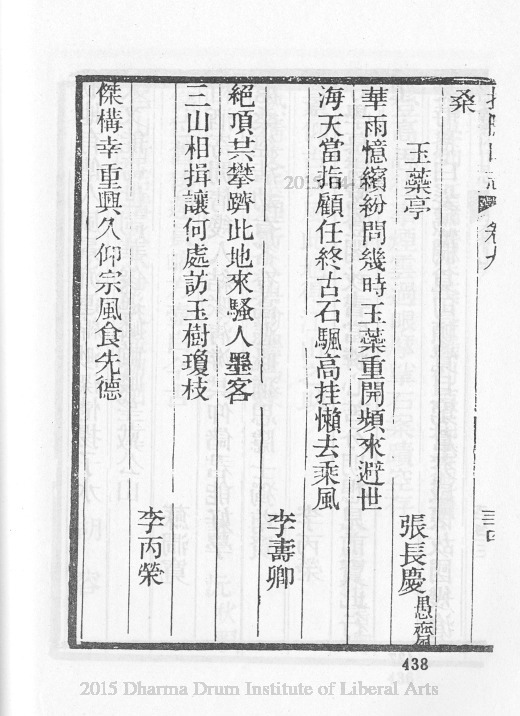 卷九
桑
玉蘂亭
張長慶愚齋
華雨憶繽紛問幾時玉蘂重開頻來避世
海天當指顧任終古石颿高挂懶去乘風
李壽卿
絕頂共攀躋此地來騷人墨客
三山相揖讓何處訪玉樹瓊枝
李丙榮
傑構幸重興久仰宗風食先德
438
2015 Dharma Drum Institute of Liberal Arts